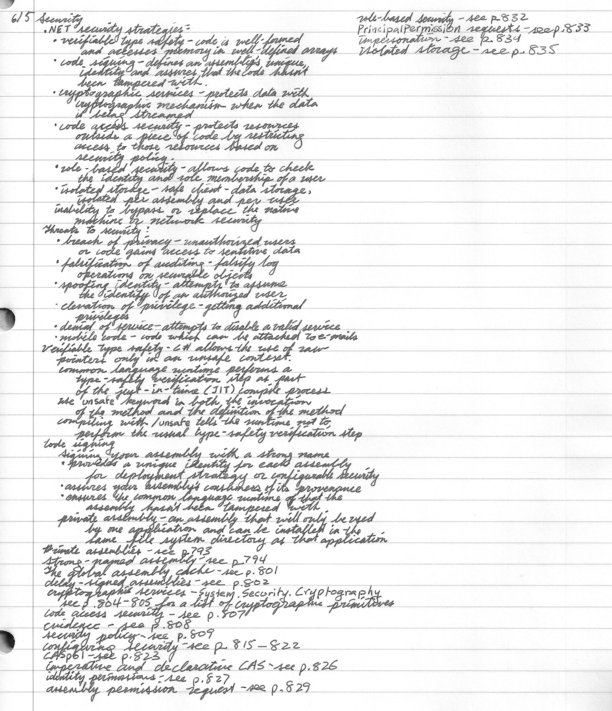 6/5 Security
.NET security strategies:
• verifiable type safety - code is well-formed
and accesses memory in well-defined arrays
• code signing - defines an assembly's unique
identity and assures that the code hasn't
been tampered with.
• cryptographic services - protects data with
cryptographic mechanism when the data
is being streamed
• code access security - protects resources
outside a piece of code by restricting
access to those resources based on
security policy.
• role-based security - allows code to check
the identity and role membership of a user
• isolated storage - safe client-data storage,
isolated per assembly and per user
inability to bypass or replace the native
machine or network security
Threats to security:
• breach of privacy - unauthorized users
or code gains access to sensitive data
• falsification of auditing - falsify log
operations on securable objects
• spoofing identity - attempts to assume
the identity of an authorized user
• elevation of privilege - getting additional
privileges
• denial of service - attempts to disable a valid service
• mobile code - code which can be attached to e-mails
Verifiable type safety - C# allows the use of raw
pointers only in an unsafe context.
common language runtime performs a
type-safety verification step as part
of the just-in-time (JIT) compile process
use "unsafe" keyword in both the invocation
of the method and the definition of the method
compiling with /unsafe tells the runtime not to
perform the usual type-safety verification step
Code signing
signing your assembly with a strong name
• provides a unique identity for each assembly
for deployment strategy or configurable security
• assures your assembly's of its provenance
• ensures the common language runtime of that the
assembly hasn't been tampered with
private assembly - an assembly that will only be used
by one application and can be installed in the
same file system directory as that application
Private assemblies - see p.793
strong-named assembly - see p.794
the global assembly cache - see p.801
delay-signed assemblies - see p.802
cryptographic services - System.Security.Cryptography
see p.804-805 for a list of cryptographic primitives
code access security - see p.807
evidence - see p.808
security policy - see p.809
configuring security - see p.815-822
CASpol - see p.823
imperative and declarative CAS - see p.826
identity permissions - see p.827
assembly permission request - see p.829
role-based security - see p.832
PrincipalPermission requests - see p.833
impersonation - see p.834
isolated storage - see p.835